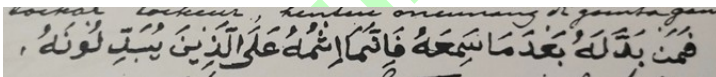 فَمَنْ بَدَّلَهُ بَعْدَ مَا سَمِعَهُ فَاِنَّمَا اِثْمُهُ عَلَى الَّذِيْنَ يُبَدِّلُوْنَهُ ،